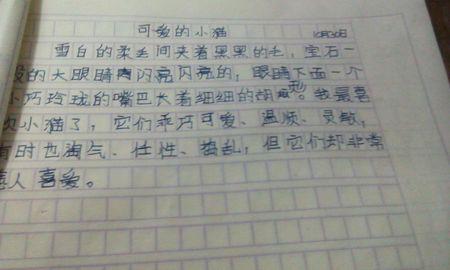 可爱的小猫 10月30日
雪白的柔毛间夹着黑黑的毛,宝石一
般的大眼睛闪亮闪亮的,眼睛下面一个
小巧玲珑的嘴巴长着细细的胡。我最喜
欢小猫了,它们乖巧可爱、温顺、灵敏,
有时也淘气、任性、捣乱,但它们却非常
惹人喜爱。